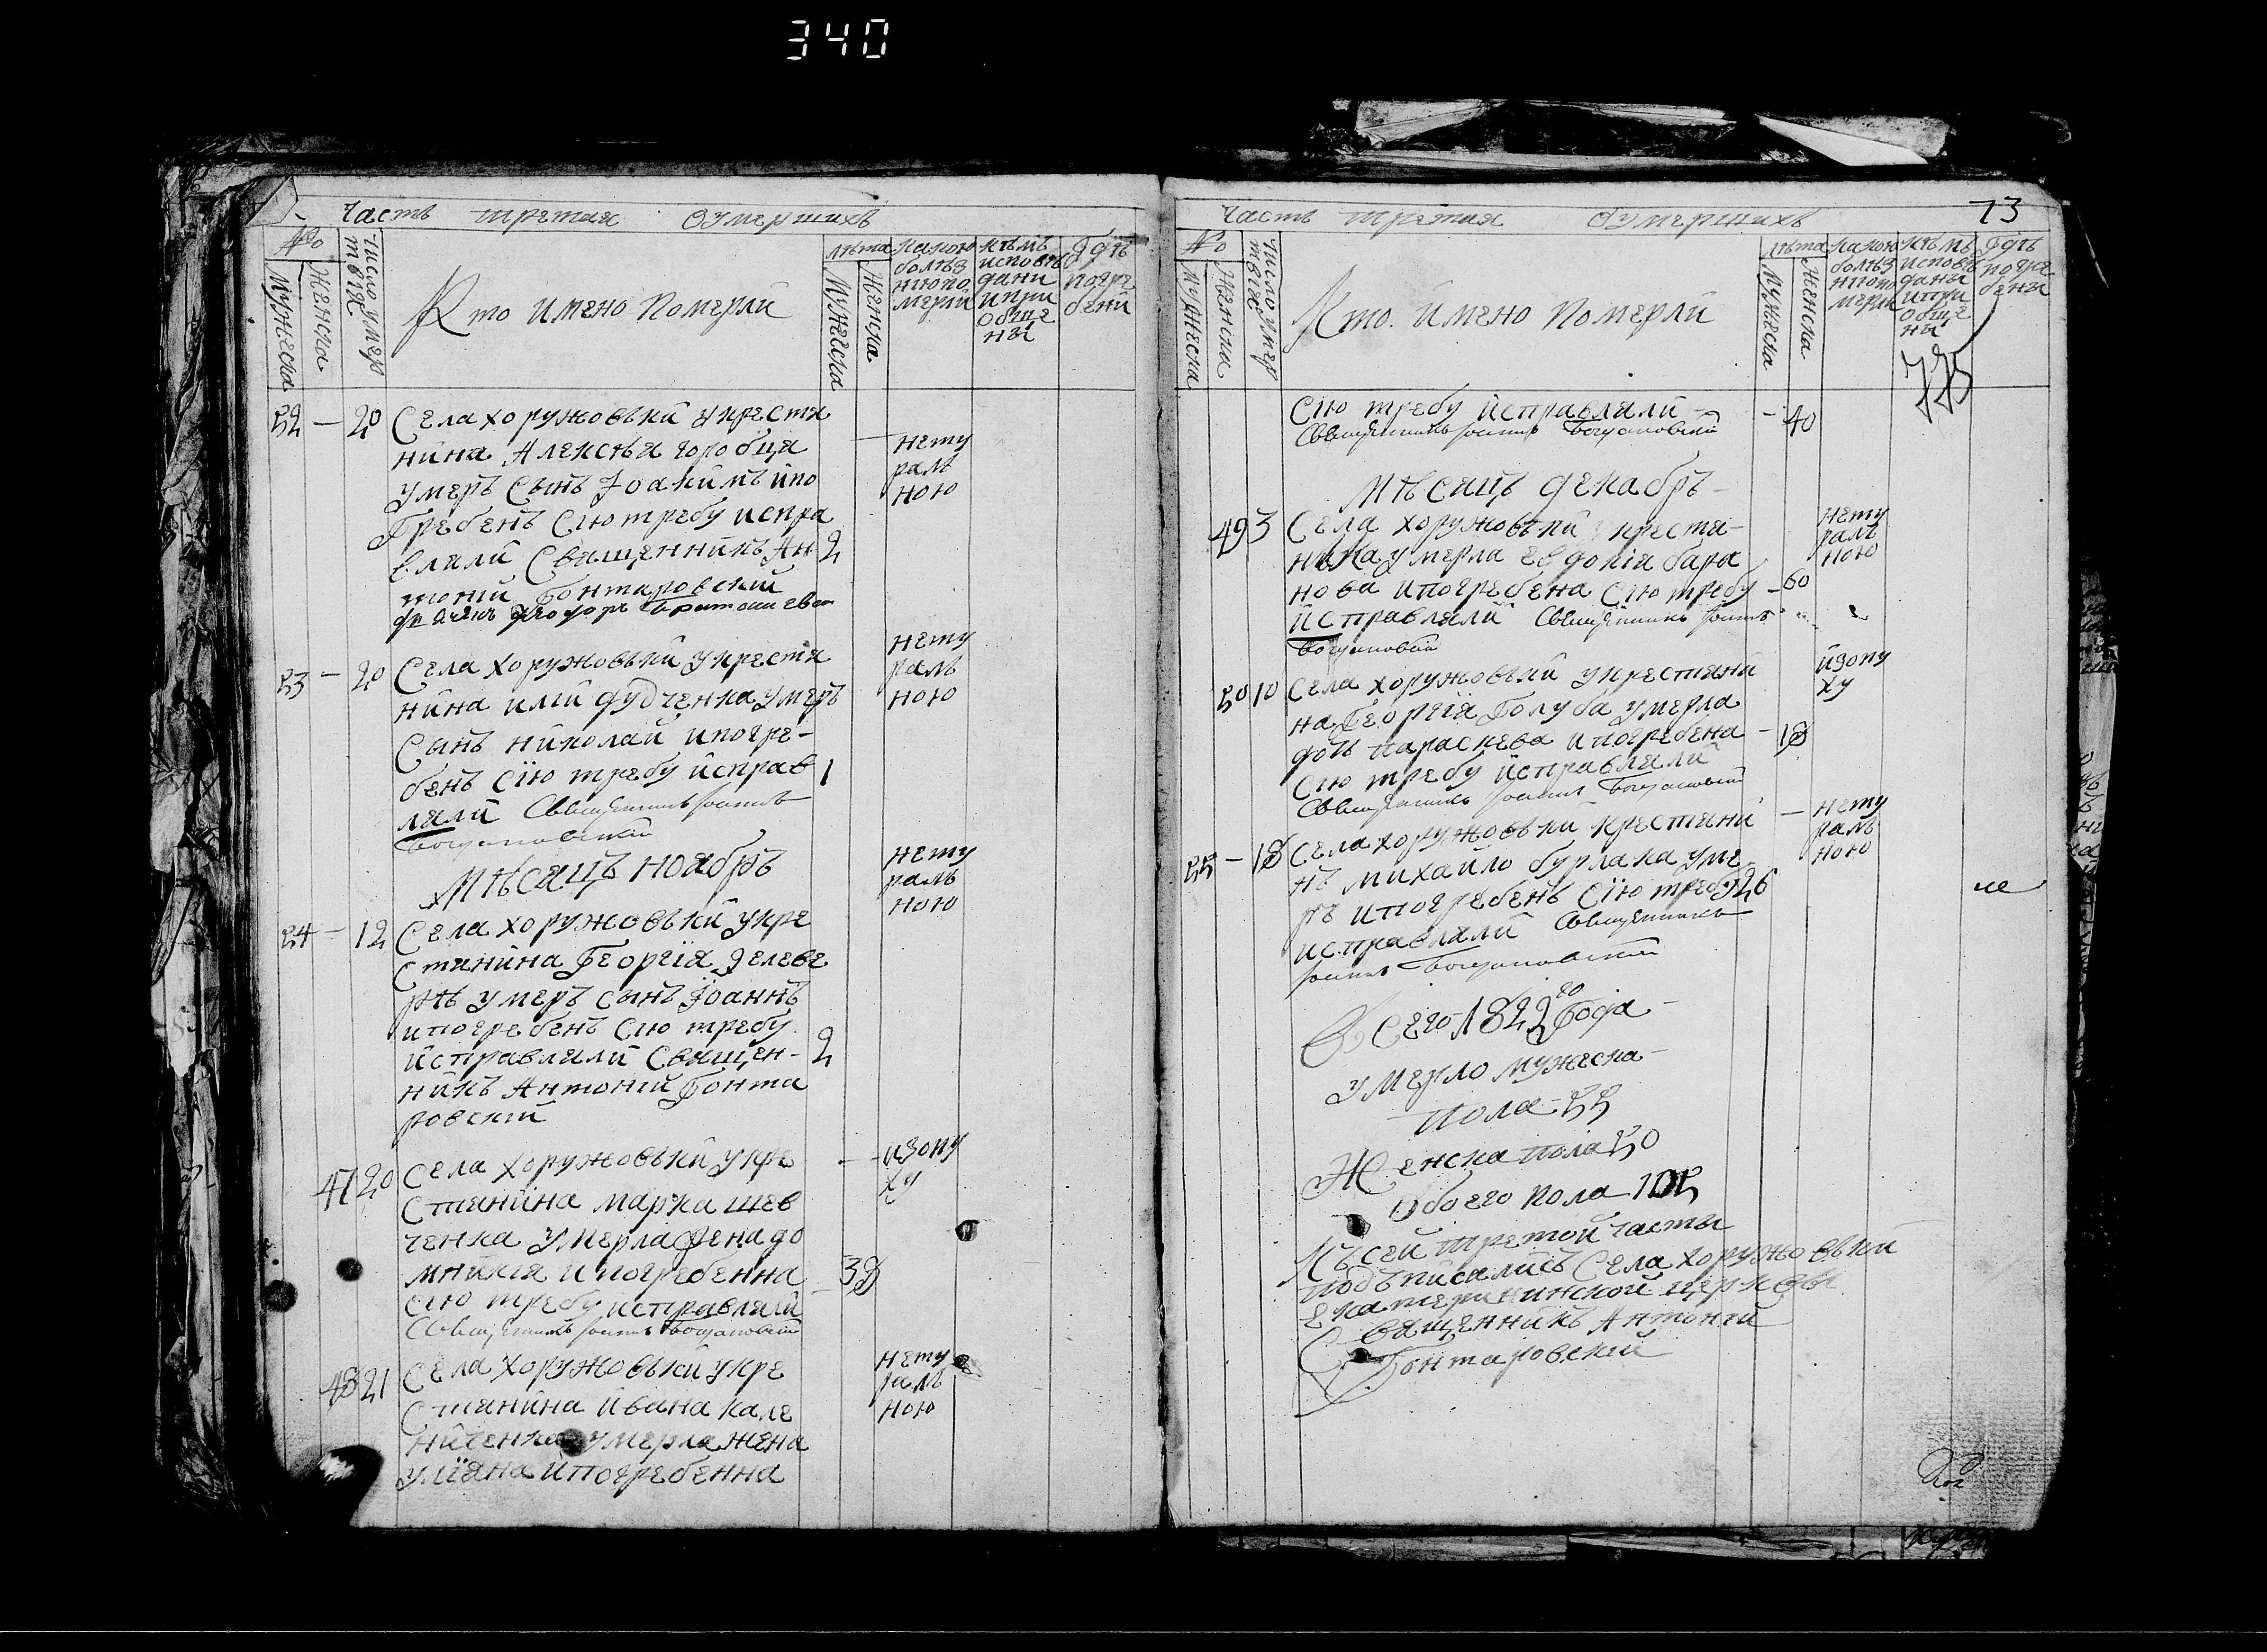 340
Часть третая О умершихъ
№
Мужеска
Женска
Число умер
твїя
Кто имено померли
лѣта
Мужеска
Женска
Какою
болѣз
нїюпо
мерли
кѣмъ
исповѣ
дани
и при
обще
ны
Гдѣ
погре
бени
52 — 20 Села хоружовьки у крестя
нина Алексѣя горобця
умеръ сынъ Іоакимъ и по
гребенъ сїю требу испра
вляли Священникъ Ан 2
тоній Бонтаровскій
нету
ралъ
ною
53 — 20 Села хоружовьки у крестя
нина иліи дудченка умеръ
сынъ николай и погре-
бенъ сїю требу исправ 1
ляли Священникъ Іоаннъ
нету
ралъ
ною
Мѣсяцъ ноябръ
54 — 12 Села хоружовьки у кре
стянина Георгїя Зелеве
рѣ умеръ сынъ Іоаннъ
и погребенъ сїю требу
исправляли Священ- 2
никъ Антоній Бонта
ровскій
нету
ралъ
ною
47 20 Села хоружовьки у кре
стянина марка шев
ченка умерла жена до
мникія и погребенна 38
сїю требу исправляли
Священникъ Іоаннъ
изопу
ху
48 21 Села хоружовьки у кре
стянина ивана кале
ниченка умерла жена
улїяна и погребенна
нету
ралъ
ною
Часть третая О умершихъ
73
№
Мужеска
Женска
Число умер
твїя
Кто имено померли
лѣта
Мужеска
Женска
Какою
болѣз
нїюпо
мерли
кѣмъ
исповѣ
даны
и при
обще
ны
Гдѣ
погре
бены
775
сїю требу исправляли - 40
Священникъ Іоаннъ
Мѣсяцъ декабрь
49 3 Села хоружовьки у крестя-
нина умерла евдокія бара
нова и погребена сїю требу - 60
исправляли Священникъ Іоаннъ
нету
ралъ
ною
50 10 Села хоружовьки у крестяни
на Георгїя Голуба умерла
дочь параскева и погребена - 18
сїю требу исправляли
Священникъ Іоаннъ
изопу
ху
55 — 18 Села хоружовьки крестяни
нъ михайло бурлака уме
ръ и погребенъ сїю требу 26
исправляли Священникъ
Іоаннъ
нету
ралъ
ною
Всего 1822го Года
умерло мужеска
пола 55
Женска пола 50
Обоего пола 105
Къ сей третой части
подъписались Села хоружовьки
екатерининской церкви
Священникъ Антоній
Бонтаровскій